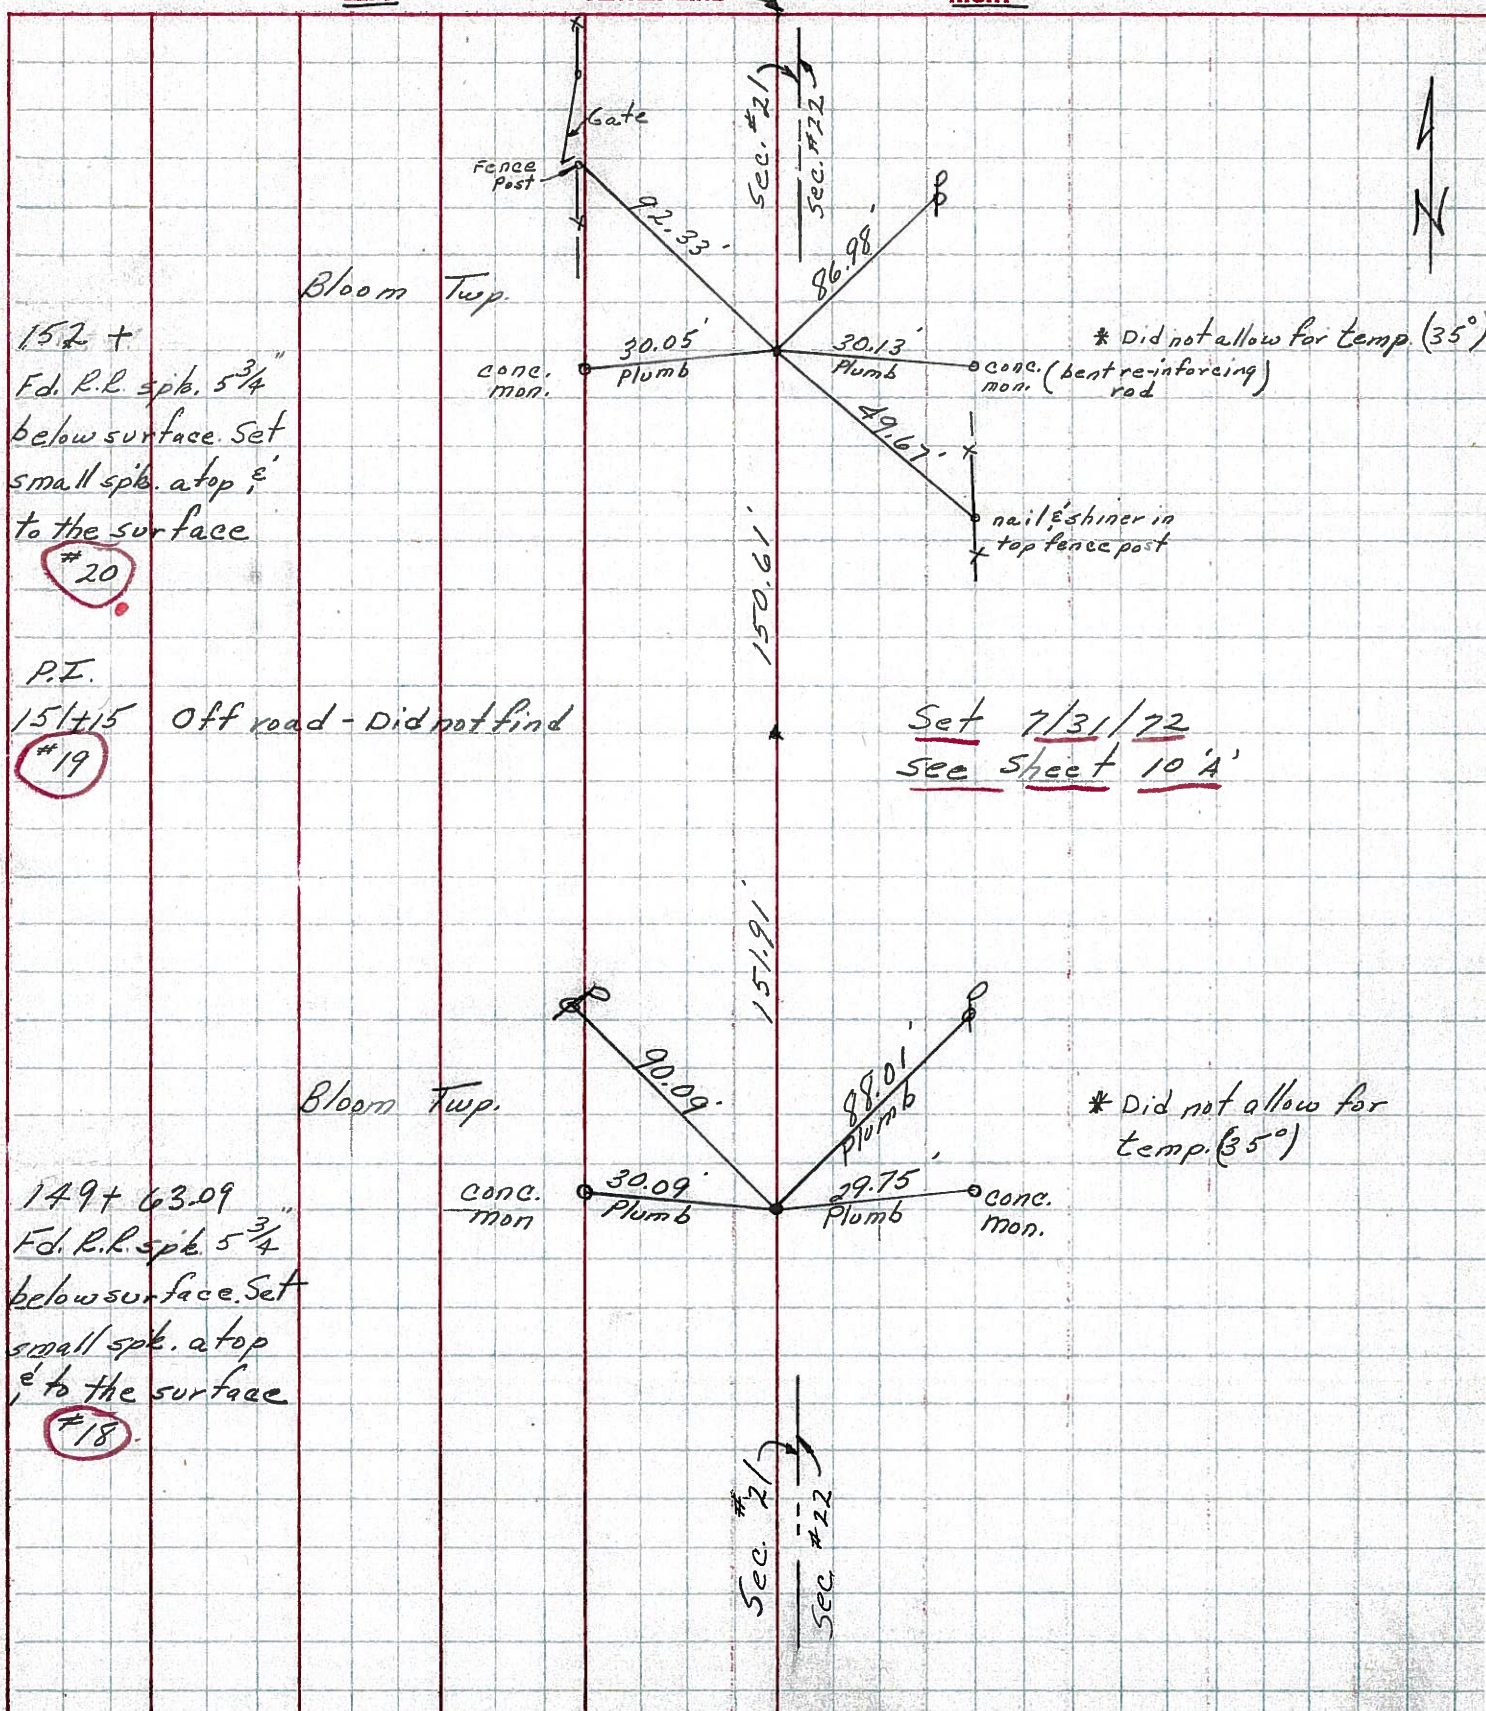 Gate
Fence
Post
Sec. #21
Sec. #22
N
92.33'
86.98'
Bloom Twp.
152 +
Fd. R.R. spk. 5 3/4"
below surface. Set
small spk. atop &
to the surface
#20
conc.
mon.
30.05'
Plumb
30.13'
Plumb
conc. (bent re-inforcing)
mon. rod
* Did not allow for temp. (35°)
49.67'
nail & shiner in
top fence post
150.61'
P.I.
151+15 Off road - Did not find
#19
Set 7/31/72
see Sheet 10 'A'
151.91'
90.09'
88.01'
Plumb
Bloom Twp.
* Did not allow for
temp. (35°)
149+ 63.09
Fd. R.R. spk. 5 3/4"
below surface. Set
small spk. atop
& to the surface
#18
conc.
mon
30.09'
Plumb
29.75'
Plumb
conc.
mon.
Sec. #21
Sec #22